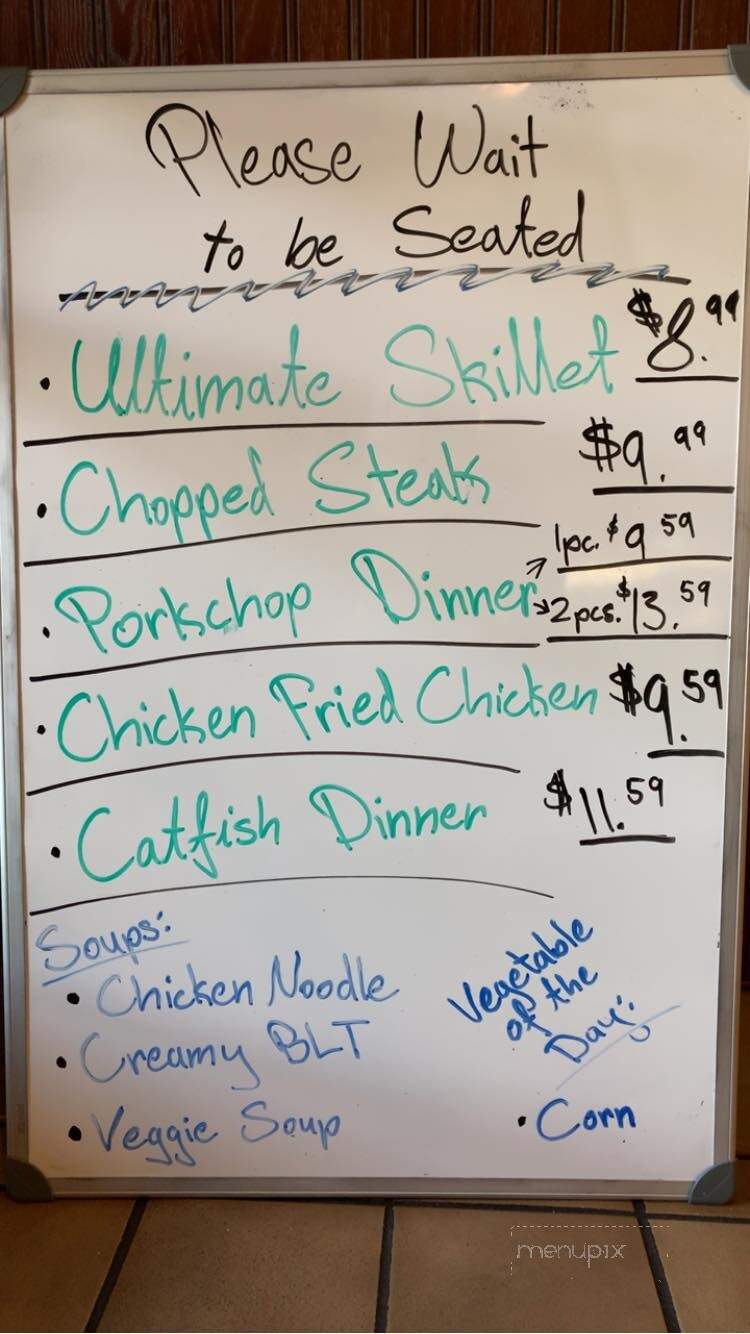 Please Wait
to be Seated
• Ultimate Skillet $8.99
• Chopped Steak $9.99
• Porkchop Dinner 1pc. $9.59
2pcs. $13.59
• Chicken Fried Chicken $9.59
• Catfish Dinner $11.59
Soups:
• Chicken Noodle
• Creamy BLT
• Veggie Soup
Vegetable
of the
Day:
• Corn
menupix